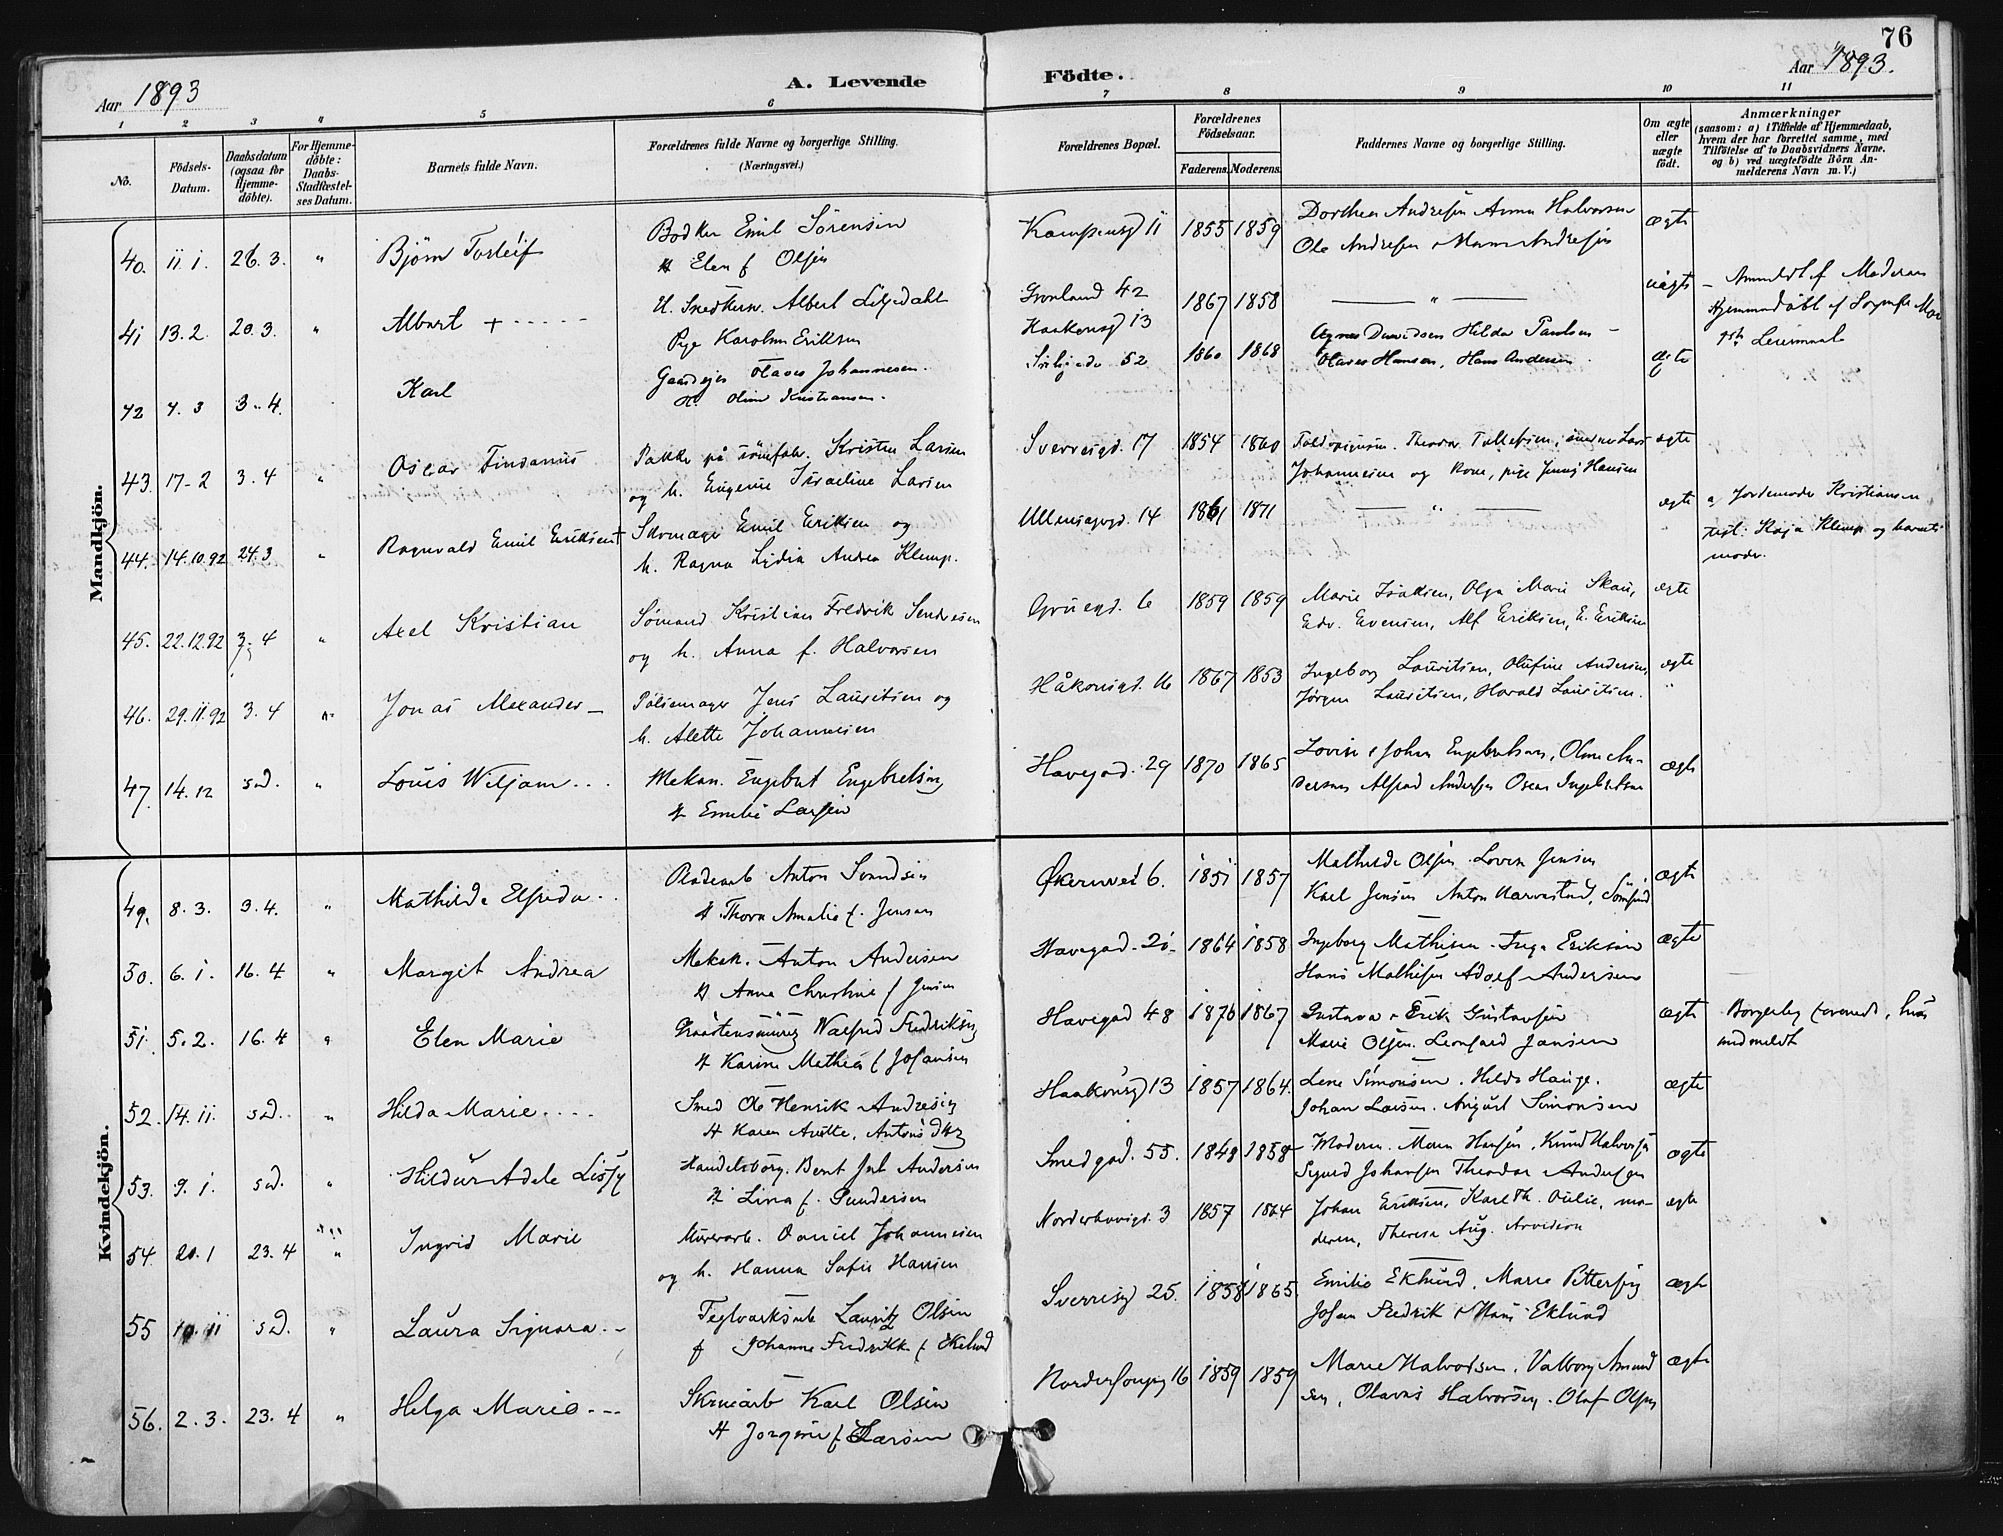 76
Aar 1893
A. Levende Födte.
Aar 1893.
1 2 3 4 5 6 7 8 9 10 11
No.
Födsels-
Datum.
Daabsdatum
(ogsaa for
Hjemme-
döbte).
For Hjemme-
döbte:
Daabs-
Stadfæstel-
ses Datum.
Barnets fulde Navn.
Forældrenes fulde Navne og borgerlige Stilling.
(Næringsvei.)
Forældrenes Bopæl.
Forældrenes
Födselsaar.
Faderens. Moderens.
Faddernes Navne og borgerlige Stilling.
Om ægte
eller
uægte
födt.
Anmærkninger
(saasom: a) i Tilfælde af Hjemmedaab,
hvem der har forrettet samme, med
Tilföielse af to Daabsvidners Navne,
og b) ved uægtefödte Börn An-
melderens Navn m. V.)
Mandkjön.
40. 11. 1. 26. 3. " Björn Torleif
Bödker Emil Sörensen
H Elen f Olsen
Kampensgd 11 1855 1859
Dorthea Andresen Anna Halvorsen
Ole Andresen
ægte
41 13. 2. 20. 3. " Albert +
Albert Liljedahl
Pige Karoline Eriksen
Grönland 42
Haakonsgd 13
1867 1858
"
uægte
Moderen
42 7. 3 3. 4. Karl
Gaardejer Olaves Johannesen.
H. Kristiansen.
52 1860 1868
Agnes Davidsen Hilda Paulsen
Olaves Hansen, Hans Andersen.
ægte
43. 17-2 3. 4 " Oscar Findanus
Kristen Larsen
og h. Eugenie Israeline Larsen
Sverresgd. 17 1854 1860
Theodor Tollefsen,
Johannesen og Kone, pige Jenny Hansen
ægte
44. 14.10.92 24.3. " Ragnvald Emil Eriksen +
Skomager Emil Eriksen og
h. Ragna Lydia Andrea Klemp.
Ullensagergd. 14 1861 1871
"
ægte
a, Jordemoder Kristiansen
Kaja Klemp og barnets
moder.
45. 22.12.92 3. 4 " Axel Kristian
Sömand Kristian Fredrik
og h. Anna f. Halvorsen
Gruegd. 6 1859 1859
Marie Isaksen, Olga Marie Skau,
Edv. Evensen, Alf Eriksen, E. Eriksen
ægte
46. 29.11.92 3. 4 " Jonas Alexander
Pölsemager Jens Lauritsen og
h. Alette Johannesen
Håkonsgd. 16 1867 1853
Ingeborg Lauritsen, Olufine Andersen,
Jörgen Lauritsen, Harald Lauritsen.
ægte
47. 14. 12 s.d. " Louis Wiljam
Mekan. Engebret Engebretsen
H Emilie Larsen
Havegad. 29 1870 1865
Lovise & Johan Engebretsen,
Alfred Andersen Oscar Ingebretsen
ægte
Kvindekjön.
49. 8. 3. 3. 4. " Mathilde Elfrida
Anton Svendsen
H Thora Amalie f. Jensen
Økernvei 6. 1851 1857
Mathilde Olsen. Jensen
Karl Jensen Anton
ægte
50. 6. 1. 16. 4 " Margit Andrea
Mekan. Anton Andersen
H Anna Christine f Jensen
Havegad. 1864 1858
Ingeborg Mathisen. Inga Eriksen
Hans Mathisen Adolf Andersen
ægte
51. 5. 2. 16. 4 " Elen Marie
Walfred Fredriksen
H Karine Mathea f Johansen
Havegad 48 1876 1867
Gustava & Erik Gustavsen
Marie Olsen. Leonard Jansen
ægte
52. 14. 11. s.d. " Hilda Marie
Smed Ole Henrik Andresen
H Karen Anette,
Haakonsgd 13 1857 1864.
Lene Simonsen. Hilda Hauge.
Johan Larsen. August Simonsen
ægte
53. 9. 1. s.d. " Hildur Adele Lissy
Handelsborg. Bernt Andersen
H Lina f. Gundersen
Smedgad. 55. 1848 1858
Moderen. Maren Hansen, Knud Halvorsen
Sigurd Johansen Theodor Andersen
ægte
54. 20. 1 23. 4 " Ingrid Marie
Murerarb. Daniel Johannesen
og h. Hanna Sofie Hansen
Norderhovsgd. 3 1857 1864
Johan Eriksen, Karl Th. Oulie, mo-
deren, Theresa Aug. Arvidson
ægte
55 11 s.d. " Laura Signora
Teglværksarb Lauritz Olsen
f Johanne Fredrikke f Ekelund
Sverresgd 25. 1858 1865.
Emilie Eklund, Marie Pettersen
Johan Fredrik & Hans Eklund
ægte
56. 2. 3. 23. 4 " Helga Marie
Karl Olsen
H Jörgine f Larsen
16 1859 1859
Marie Halvorsen, Valborg Amund
sen, Olaves Halvorsen. Olaf Olsen
ægte